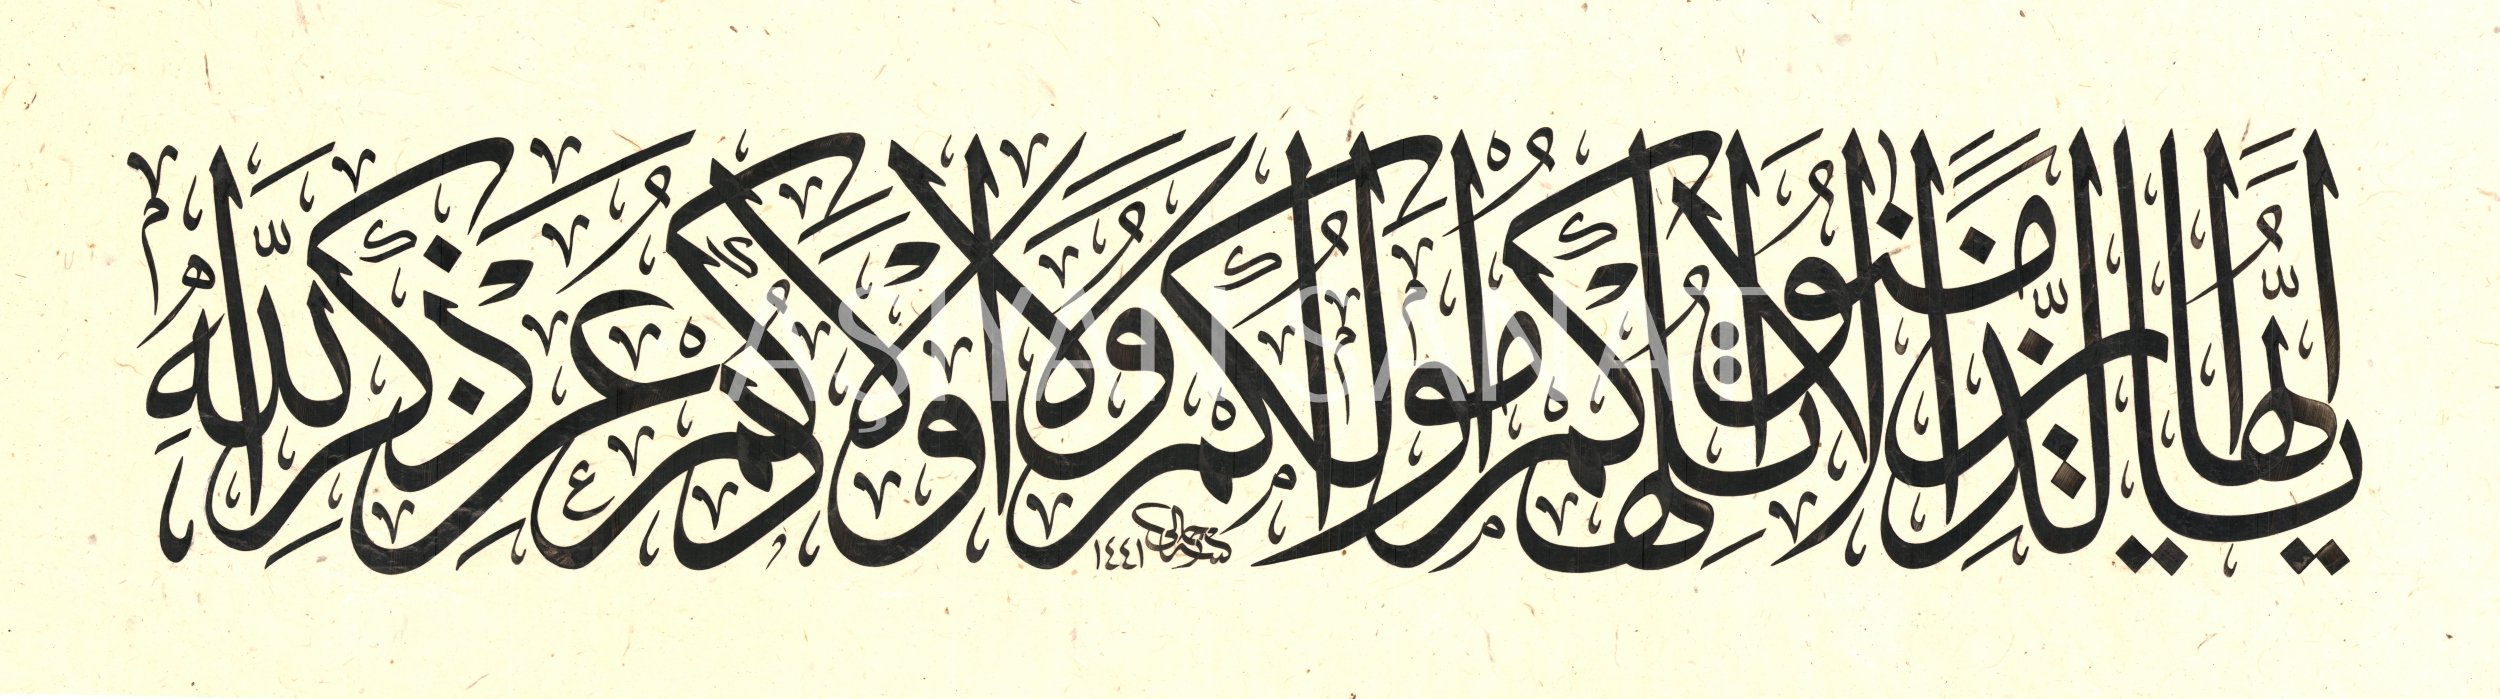 يَا أَيُّهَا الَّذِينَ آمَنُوا لَا تُلْهِكُمْ أَمْوَالُكُمْ وَلَا أَوْلَادُكُمْ عَن ذِكْرِ اللَّهِ
١٤٤١
AŞİYAN SANAT